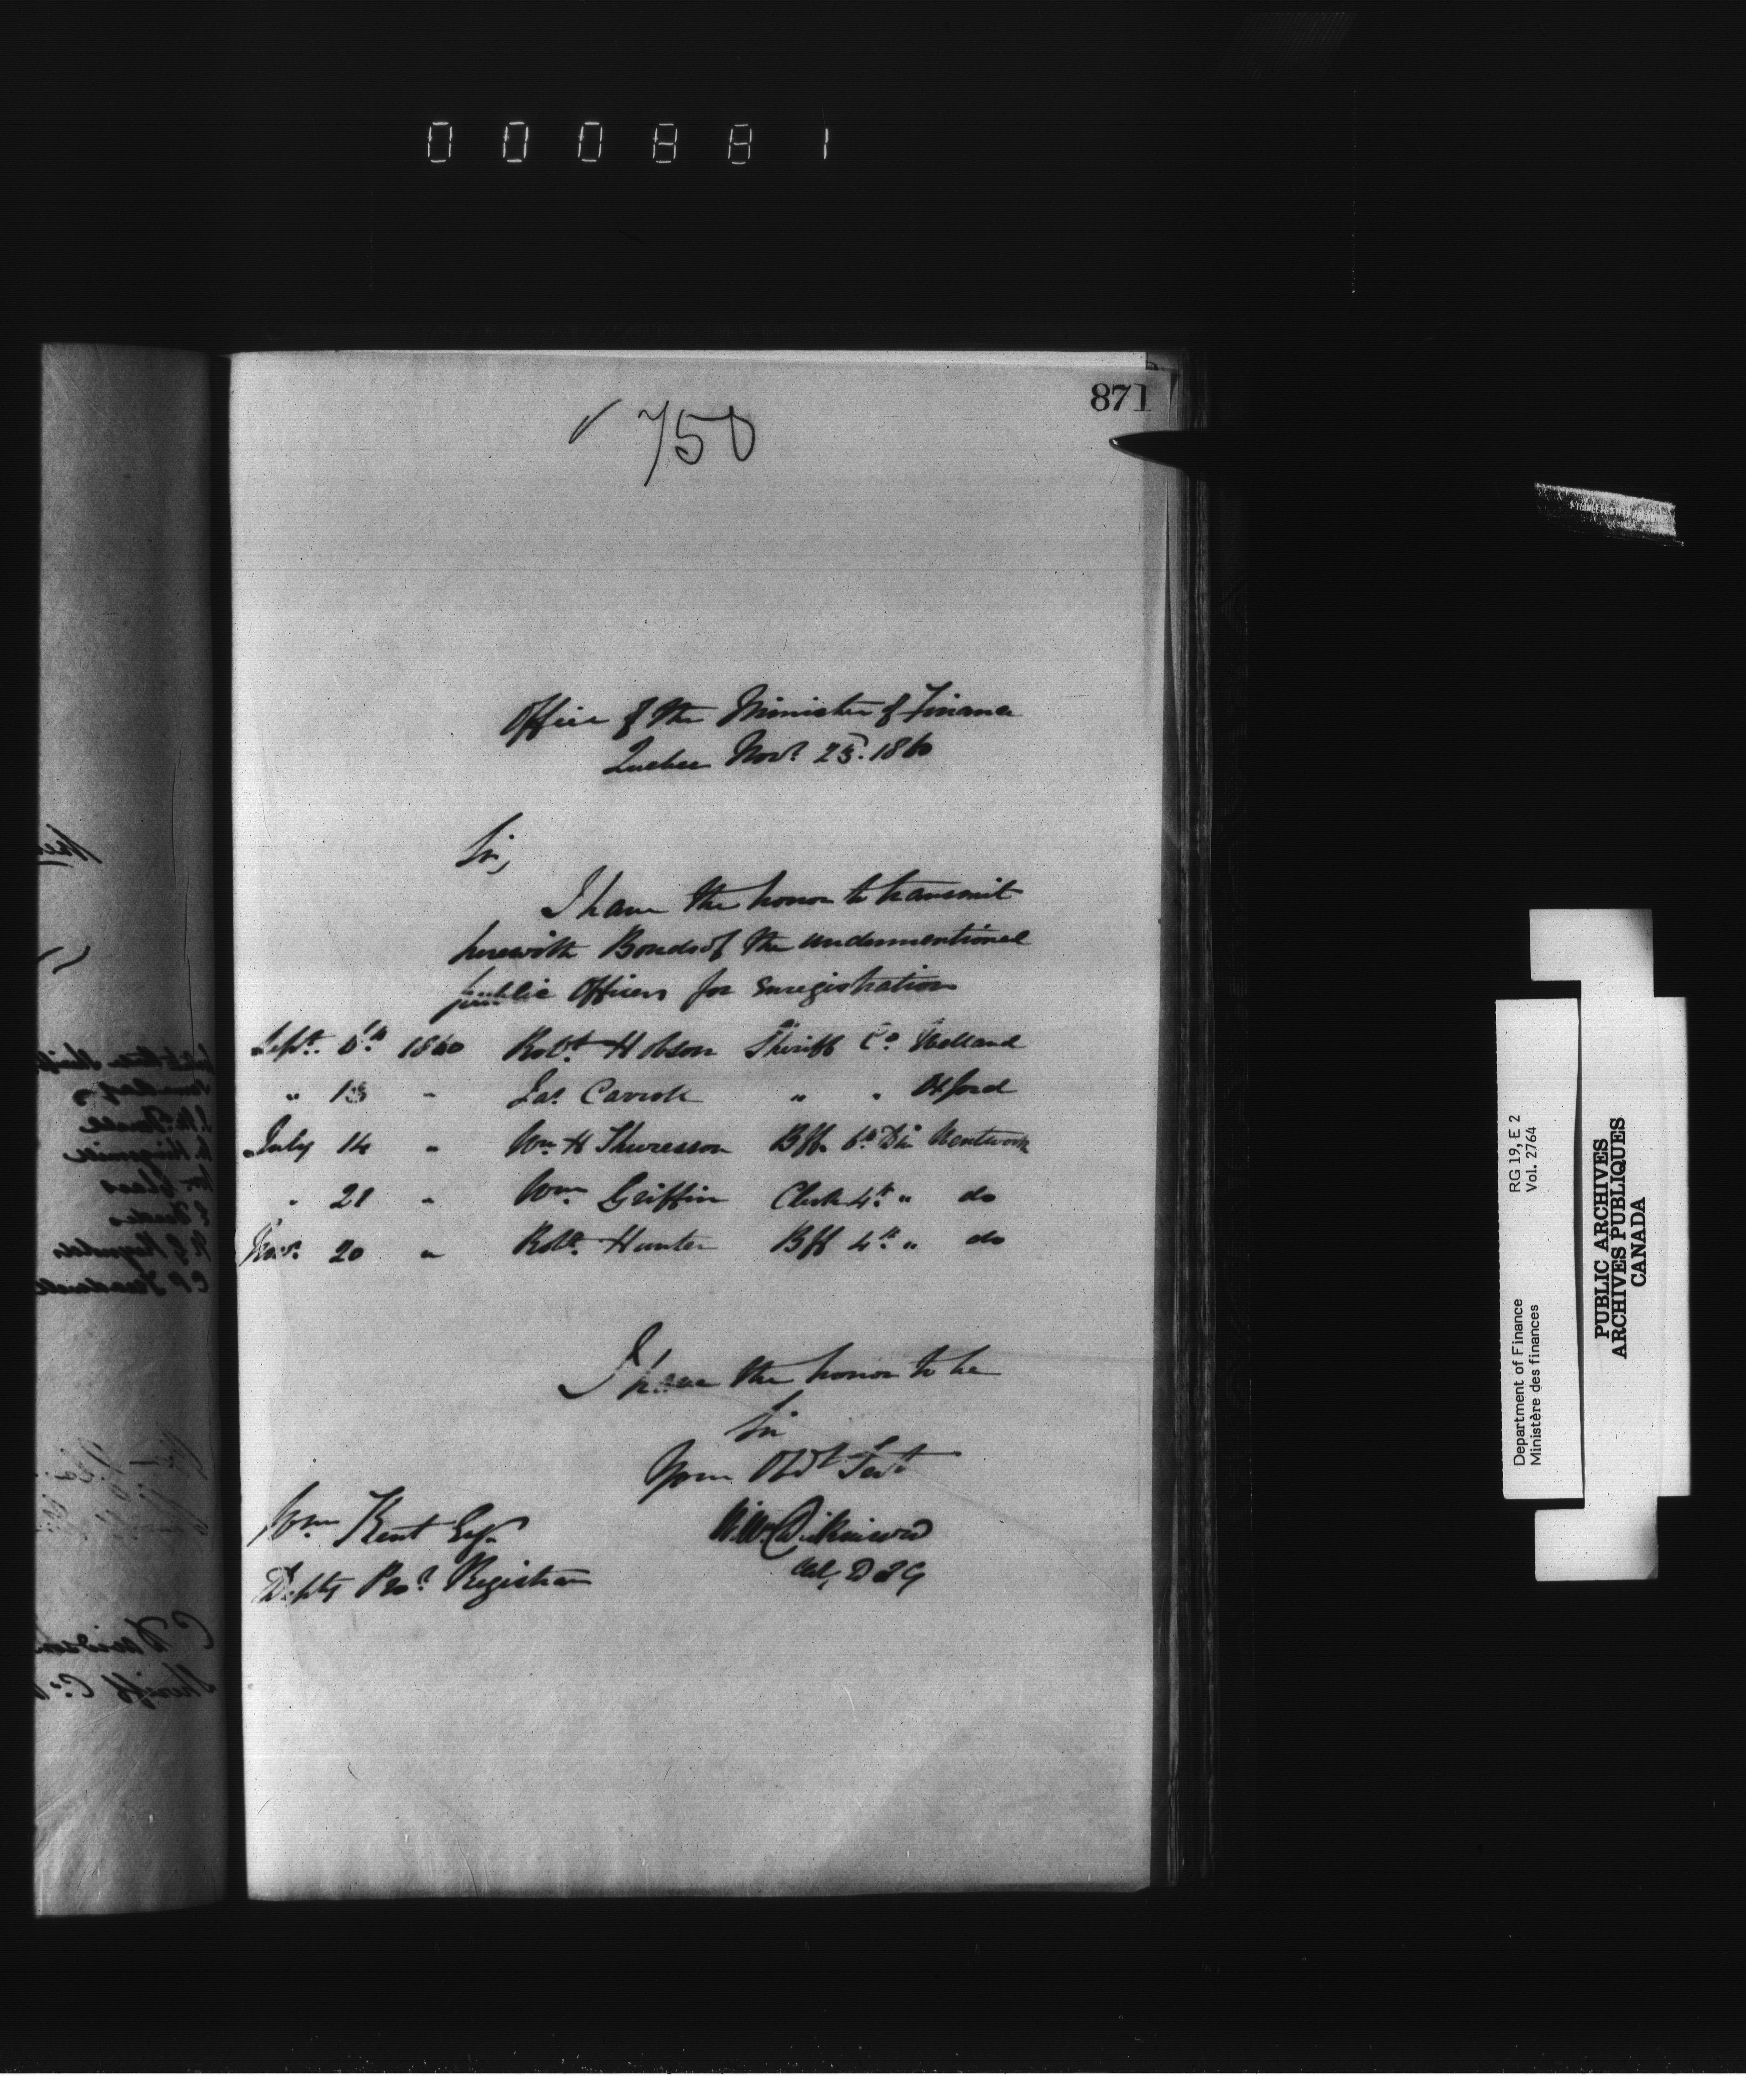 000881
871
750
Office of the Minister of Finance
Quebec Novr 23. 1860
Sir,
I have the honor to transmit
herewith Bonds of the undermentioned
public Officers for enregistration
Sept. 1860 Robt Hobson Sheriff Co Welland
" 13 " Jas Carroll " " Oxford
July 14 " Wm H Thuresson Blff. 6th Div Wentworth
" 21 " Wm Griffin Clerk 4th " do
Novr 20 " Robt Hunter Blff 4th " do
I have the honor to be
Sir
Your Obdt Servt
Wm Dickinson
Actg D I G
Wm Kent Esq.
Depty Prol Registrar
Department of Finance RG 19, E 2
Ministère des finances Vol. 2764
PUBLIC ARCHIVES
ARCHIVES PUBLIQUES
CANADA